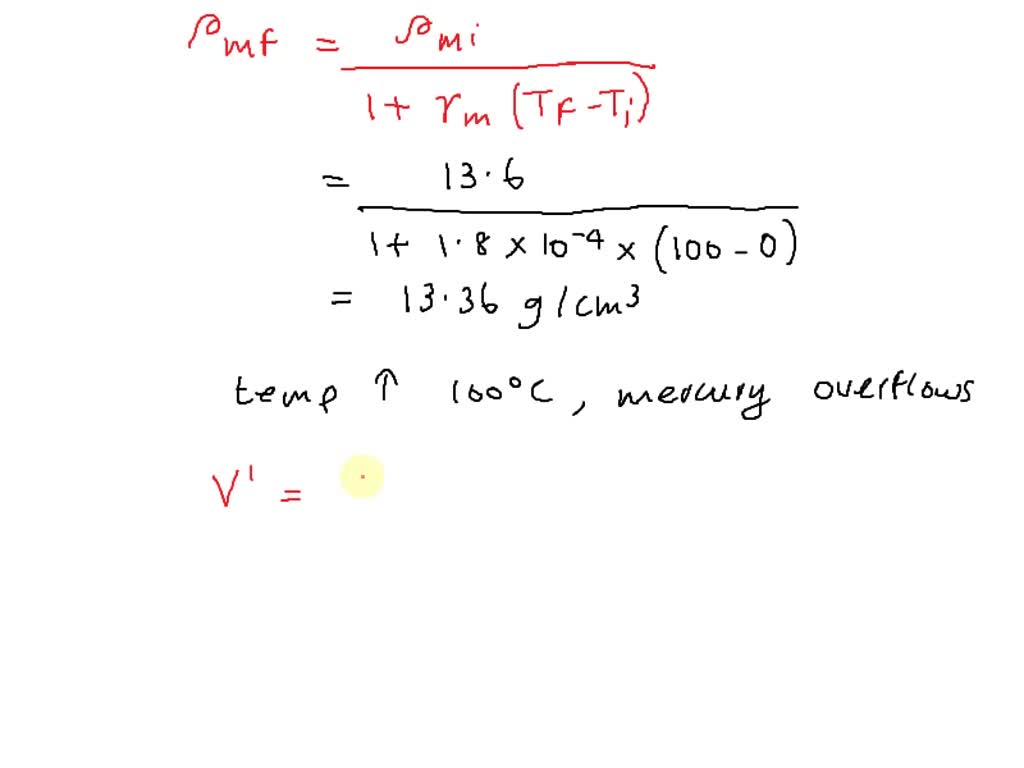 ρmf = ρmi / 1 + γm (Tf - Ti)
= 13.6 / 1 + 1.8 × 10⁻⁴ × (100 - 0)
= 13.36 g/cm³
temp ↑ 100°C, mercury overflows
V' =